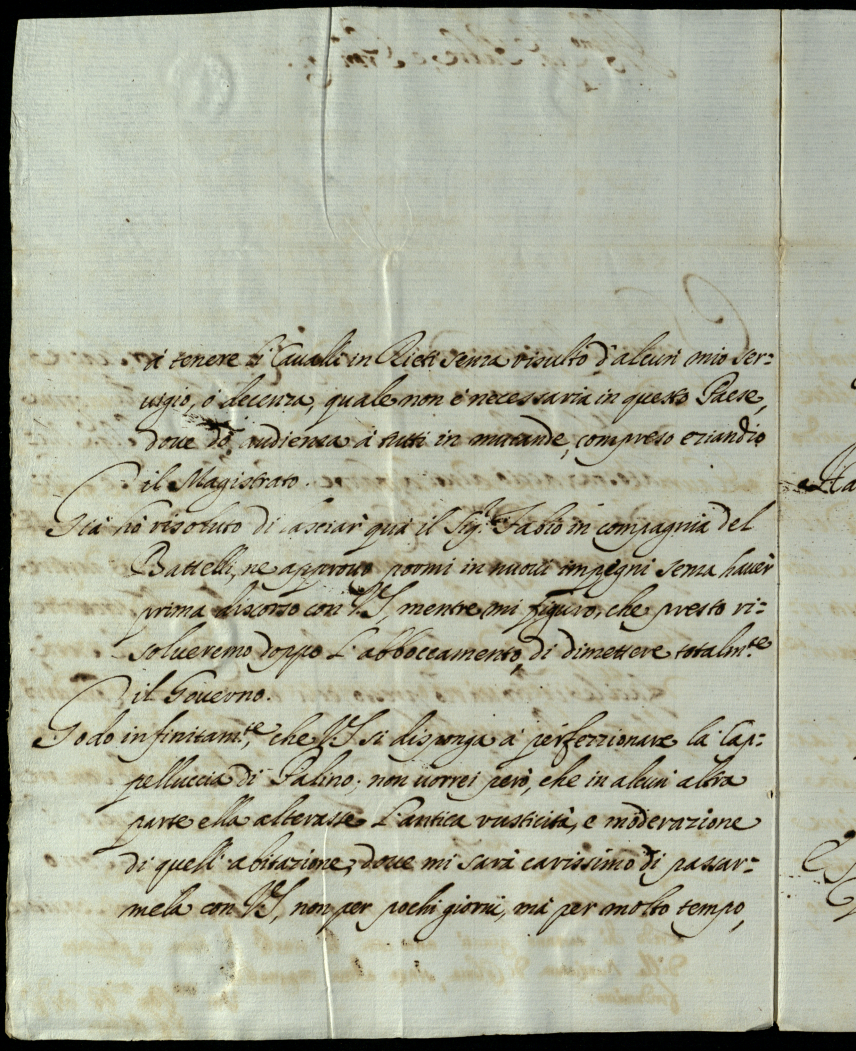 di tenere li Cavalli in Rieti senza risulto d'alcun mio ser=
uigio, ò decenza, quale non è necessaria in questo Paese,
doue dò audienza à tutti in mutande, compreso eziandio
il Magistrato.
Già hò risoluto di lasciar quà il Sig.r Fabio in compagnia del
Battelli, ne approuo pormi in nuoui impegni senza hauer
prima discorso con VS, mentre mi figuro, che presto ri=
solueremo doppo l'abboccamento, di dimettere totalm.te
il Gouerno.
Godo infinitam.te, che VS si disponga à perfezzionare la Cap=
pelluccia di Palino; non uorrei però, che in alcun altra
parte ella alterasse l'antica rusticità, e moderazione
di quell'abitazione, doue mi sarà carissimo di passar=
mela con VS, non per pochi giorni, mà per molto tempo,